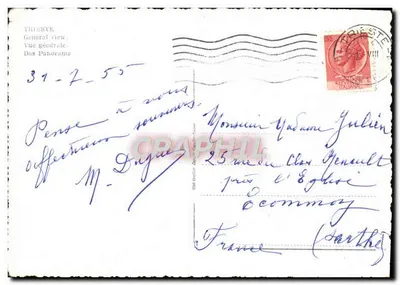 TRIESTE
General view
Vue générale
Das Panorama
TRIESTE
VIII
31-7-55
Pense à vous
affectueux souvenirs.
M.
CRAPAUD
Monsieur Madame Julien
23 rue du Clos Renault
près l'Eglise
Ecommoy
France (Sarthe)